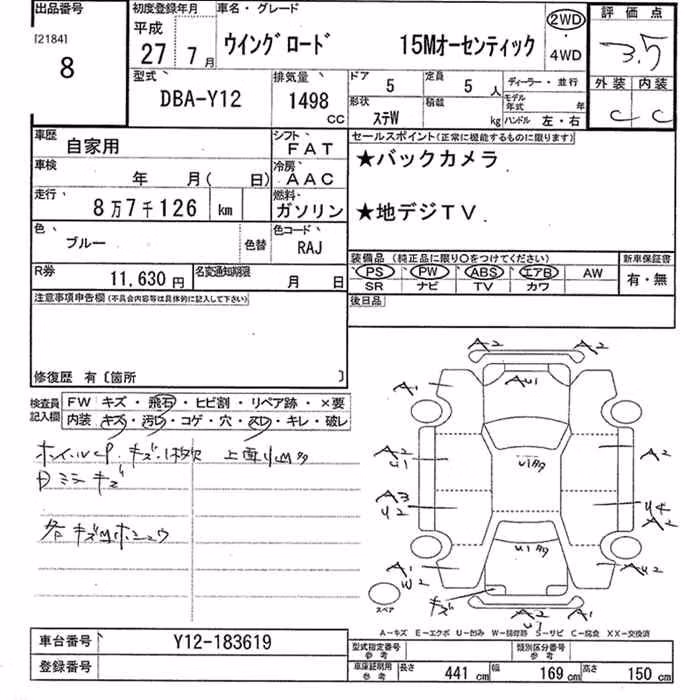 出品番号
[2184]
8
初度登録年月
平成
27 7月
車名・グレード
ウイングロード 15Mオーセンティック
2WD
・
4WD
評価点
3.5
外装 内装
C C
型式
DBA-Y12
排気量
1498
CC
ドア
5
定員
5 人
ディーラー・並行
形状
ステW
積載
kg
モデル年式 年
ハンドル 左・右
車歴
自家用
シフト
FAT
車検
年 月( 日)
冷房
AAC
走行
8万7千126 km
燃料
ガソリン
色
ブルー
色替
色コード
RAJ
R券
11,630 円
名変通知期限
月 日
セールスポイント(正常に機能するものに限ります)
★バックカメラ
★地デジTV
装備品(純正品に限り○をつけてください)
新車保証書
PS PW ABS エアB AW
SR ナビ TV カワ
有・無
後日品
注意事項申告欄(不具合内容等は具体的に記入して下さい)
修復歴 有〔箇所 〕
検査員
記入欄
FW キズ・飛石・ヒビ割・リペア跡・×要
内装 キズ・汚れ・コゲ・穴・スレ・キレ・破レ
ホイルCP キズ 1枚欠
Dミラーキズ
各キズ
A2 A2
A1
AU1
A2
U1
A2
U1多
A3
U2
U4
A2
U1多
A1
U2
AU2
キズ
A2 A1
U1
スペア
A-キズ E-エクボ U-凹み W-板修跡 S-サビ C-腐食 XX-交換済
車台番号
Y12-183619
登録番号
型式指定番号
参考
類別区分番号
参考
車庫証明用
参考
長さ 441 cm 幅 169 cm 高さ 150 cm